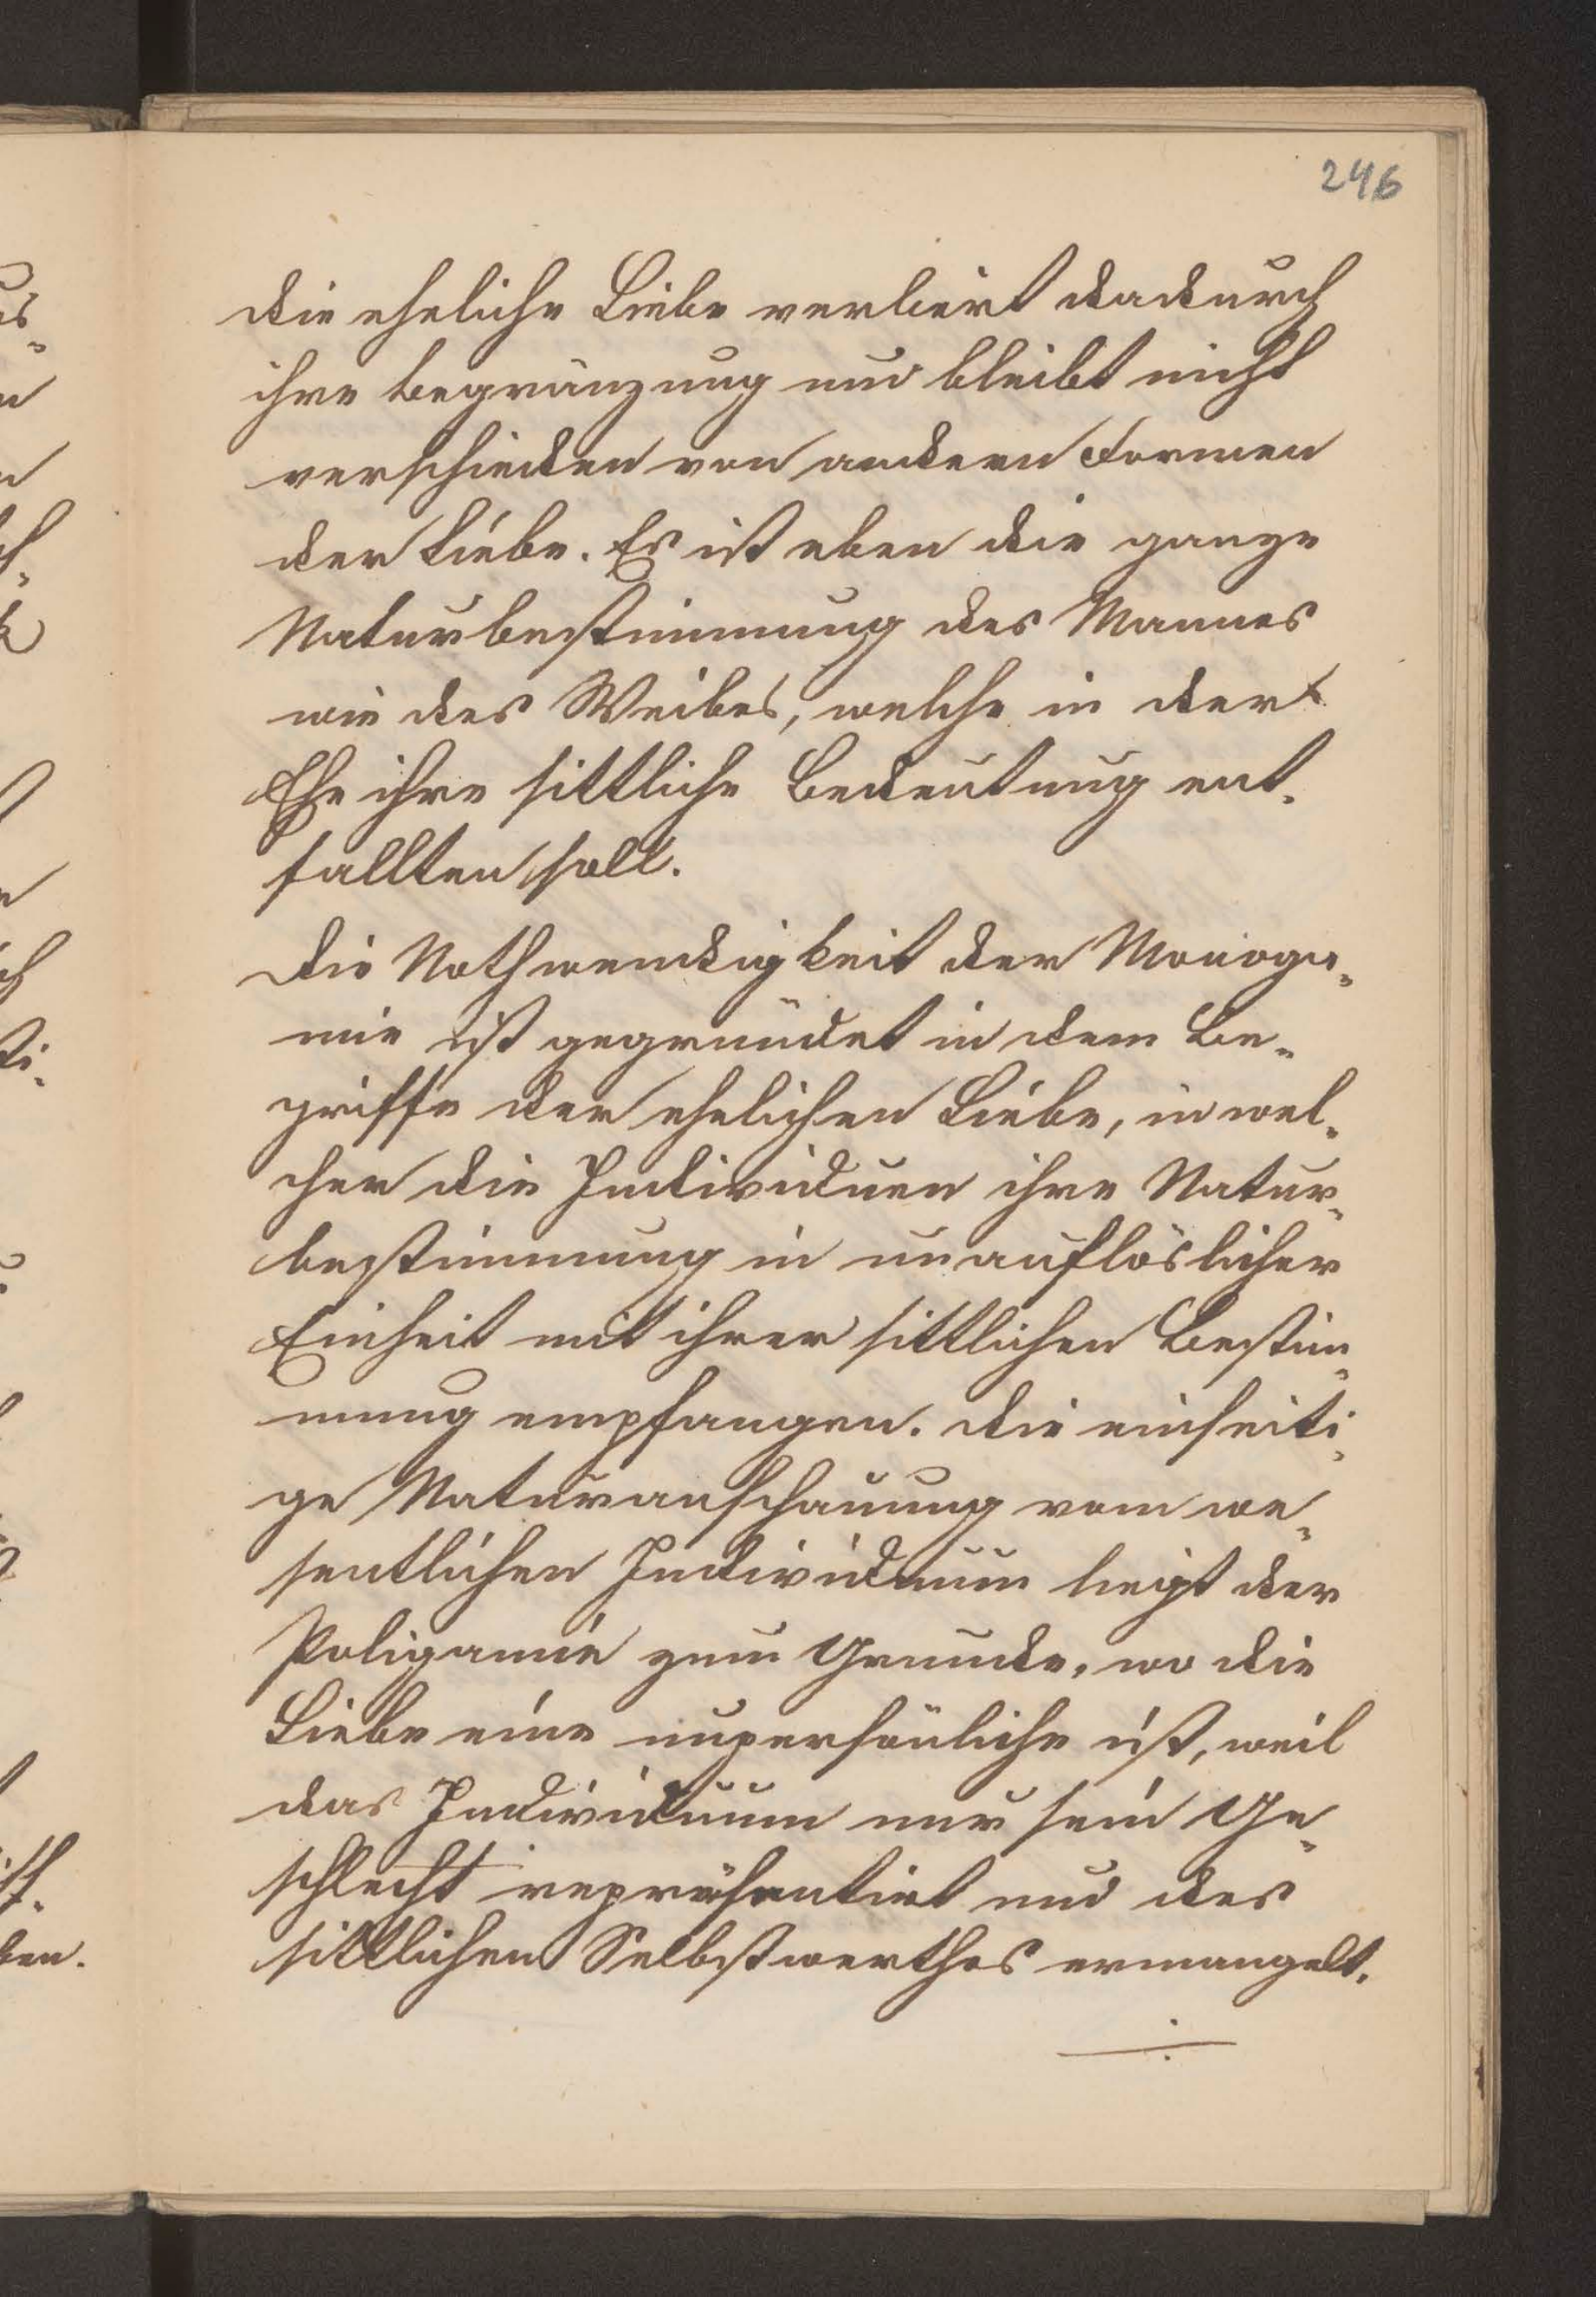 246
die eheliche Liebe verliert dadurch
ihre Begränzung und bleibt nicht
verschieden von andern Formen
der Liebe. Es ist eben die ganze
Naturbestimmung des Mannes
wie des Weibes, welche in der
Ehe ihre sittliche Bedeutung ent-
fallten soll.
Die Nothwendigkeit der Monoga-
mie ist gegründet in dem Be-
griffe der ehelichen Liebe, in wel-
cher die Individuen ihre Natur-
bestimmung in unauflöslicher
Einheit mit ihrer sittlichen Bestim-
mung empfangen. Die einseiti-
ge Naturanschauung vom we-
sentlichen Individuum liegt der
Poligamie zum Grunde, wo die
Liebe eine unpersönliche ist, weil
das Individuum nur sein Ge-
schlecht repräsentirt und des
sittlichen Selbstwerthes ermangelt.